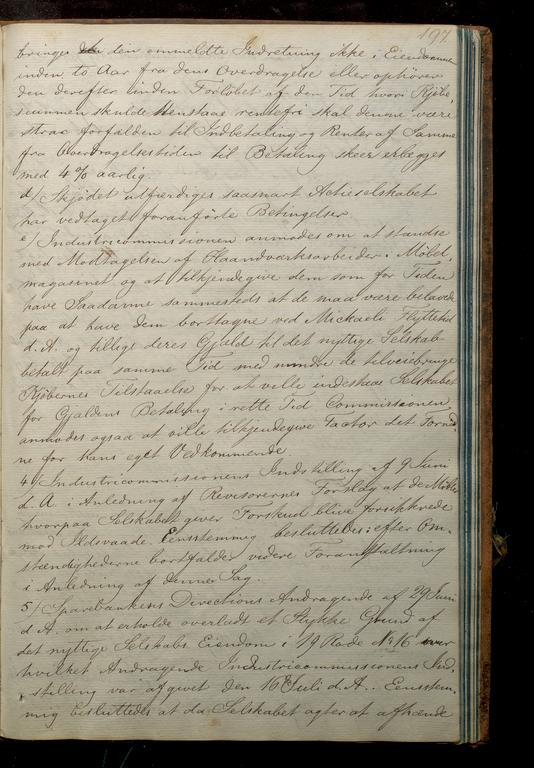 197
bringes den ommeldte Indretning ikke i Eiendommen
inden to Aar fra dens Overdragelse eller ophører
den derefter inden Forløbet af den Tid hvori Kjøbe-
summen skulde henstaae rentefri skal denne være
strax forfalden til Indbetaling og Renter af Samme
fra Overdragelsestiden til Betaling skeer erlægges
med 4% aarlig.
d/ Skjødet udfærdiges saasnart Actieselskabet
har vedtaget foranførte Betingelser
e/ Industricommissionen anmodes om at standse
med Modtagelsen af Haandværksarbeider i Møbel-
magasinet, og at tilkjendegive dem som for Tiden
have Saadanne sammesteds at de maa være belavede
paa at have dem borttagne ved Mickaeli Flyttetid
d. A. og tillige deres Gjæld til det nyttige Selskab
betalt paa samme Tid med mindre de tilveiebringe
Kjøbernes Tilstaaelse for at ville indestaae Selskabet
for Gjældens Betaling i rette Tid Commissionen
anmodes ogsaa at ville tilkjendegive Factor det Fornød-
ne for hans eget Vedkommende
4/ Industricommissionens Indstilling af 9 Juni
d. A. i Anledning af Revisorernes Forslag at de Møbler
hvorpaa Selskabet giver Forskud blive forsikkrede
mod Ildsvaade. Eensstemmig besluttedes: efter Om-
stændighederne bortfalder videre Foranstaltning
i Anledning af denne Sag.
5/ Sparebankens Directions Andragende af 29 Juni
d. A. om at erholde overladt et Stykke Grund af
det nyttige Selskabs Eiendom i 19 Rode No 16 over
hvilket Andragende Industricommissionens Ind-
stilling var afgivet den 16 Juli d. A.. Eensstem-
mig besluttedes at da Selskabet agter at afhænde